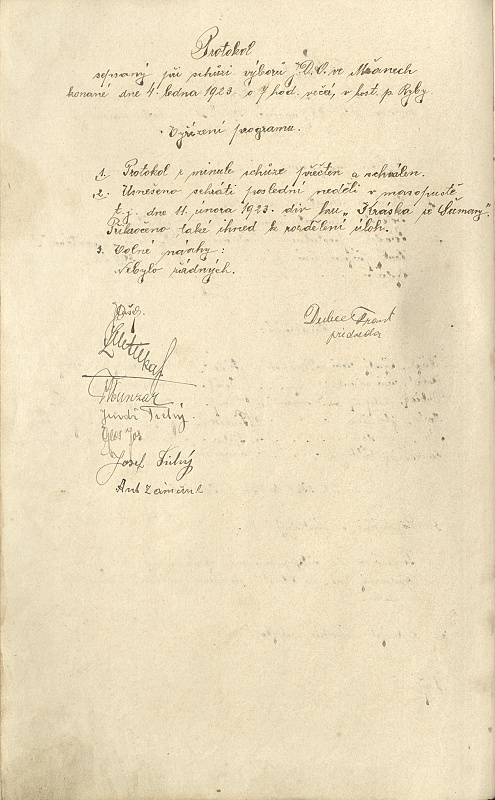 Protokol
sepsaný při schůzi výborů J.D.O. ve Mžanech
konané dne 4. ledna 1923 o 7 hod. večer, v host. p. Ryby.
Vyřízení programu.
1. Protokol z minulé schůze přečten a schválen.
2. Usnešeno sehráti poslední neděli v masopustě
t.j. dne 11. února 1923 div. hru „Kráska ze Šumavy".
Přikročeno také ihned k rozdělení úloh.
3. Volné návrhy:
Nebylo žádných.
Dubec Frant
předseda
Munzar
Jindř Tichý.
Josef Tichý
Ant Zámečník